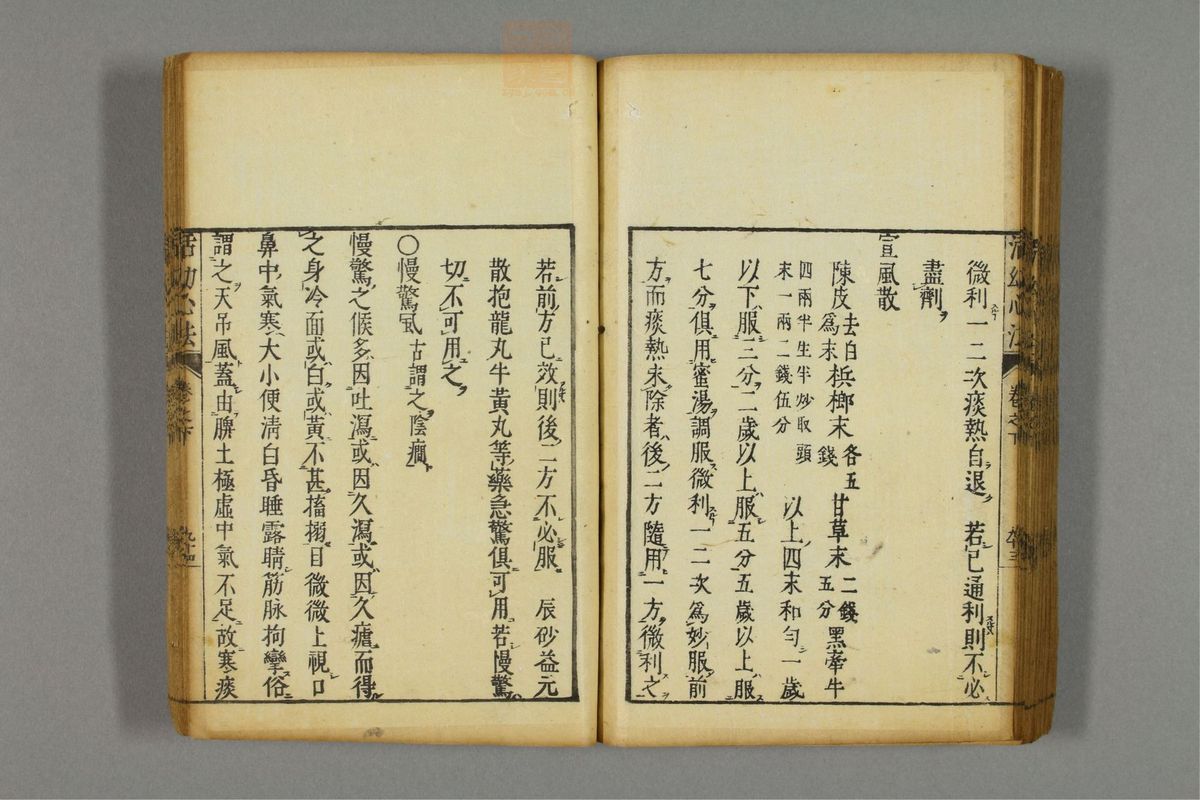 微利一二次痰熱自退　若已通利則不必
盡劑
宣風散
陳皮去白為末檳榔末各五錢甘草末二錢五分黑牽牛
四兩半生半炒取頭末一兩二錢伍分　以上四末和勻一歲
以下服三分二歲以上服五分五歲以上服
七分俱用蜜湯調服微利一二次為妙服前
方而痰熱未除者後二方隨用一方微利之
活幼心法
卷之下
若前方已效則後二方不必服　辰砂益元
散抱龍丸牛黃丸等藥急驚俱可用若慢驚
切不可用之
〇慢驚風古謂之陰癇
慢驚之候多因吐瀉或因久瀉或因久瘧而得
之身冷面或白或黃不甚搐搦目微微上視口
鼻中氣寒大小便清白昏睡露睛筋脉拘攣俗
謂之天吊風蓋由脾土極虛中氣不足故寒痰
活幼心法
卷之下
九十四